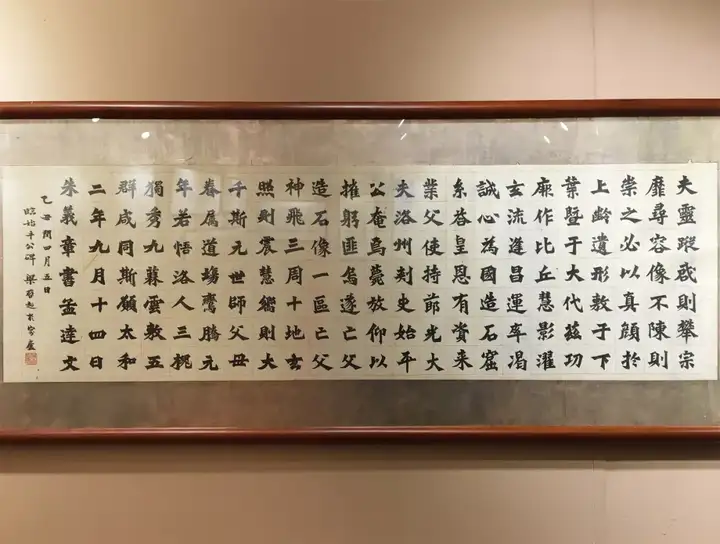 夫靈蹤戓則攀宗
靡尋容像不陳則
崇之必以真顏於
上齡遺形敷于下
葉暨于大代茲功
厥作比丘慧影濯
玄流逢昌運率渴
誠心為國造石窟
系荅皇恩有資来
業父使持節光大
夫洛州刾史始平
公奄焉薨放仰以
摧躬匪烏遂亡父
造石像一區亡父
神飛三周十地玄
照則震慧嚮則大
千斯元世師父母
眷属道場鸞騰元
年若悟洛人三槐
獨秀九蕀雲敷五
群咸同斯願太和
二年九月十四日
朱義章書孟達文
乙丑閏四月五日
臨始平公碑 梁啟超